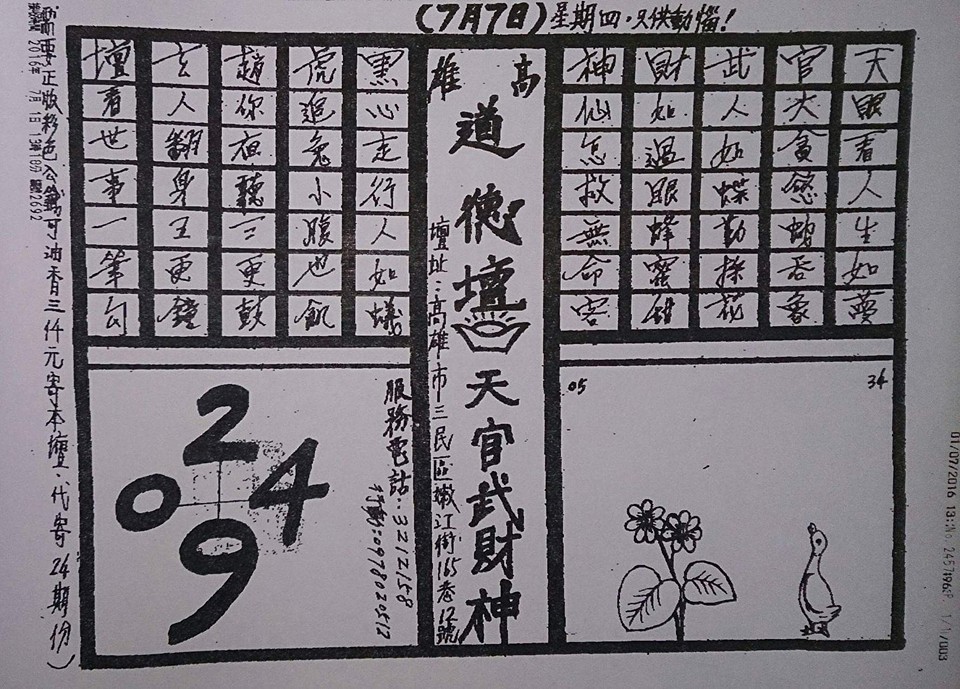 (7月7日)星期四．只供動惱！
天眼看人生如夢
官大貪慾蛇吞象
武人如蝶勤採花
財如過眼蜂蜜甜
神仙怎救無命客
高雄
道德壇
天官武財神
壇址：高雄市三民區嫩江街165巷12號
黑心走行人如蟻
虎追兔小腹也飢
趙你祖聽三更鼓
玄人翻身五更錢
壇看世事一筆勾
34
05
服務電話：3212158
行動：0978020512
2
0 4
9
需要正版彩色公鐵可油香三仟元寄本壇（代寄24期份）
2016年 7月 1日
01/07/2016 13:
No. 2457